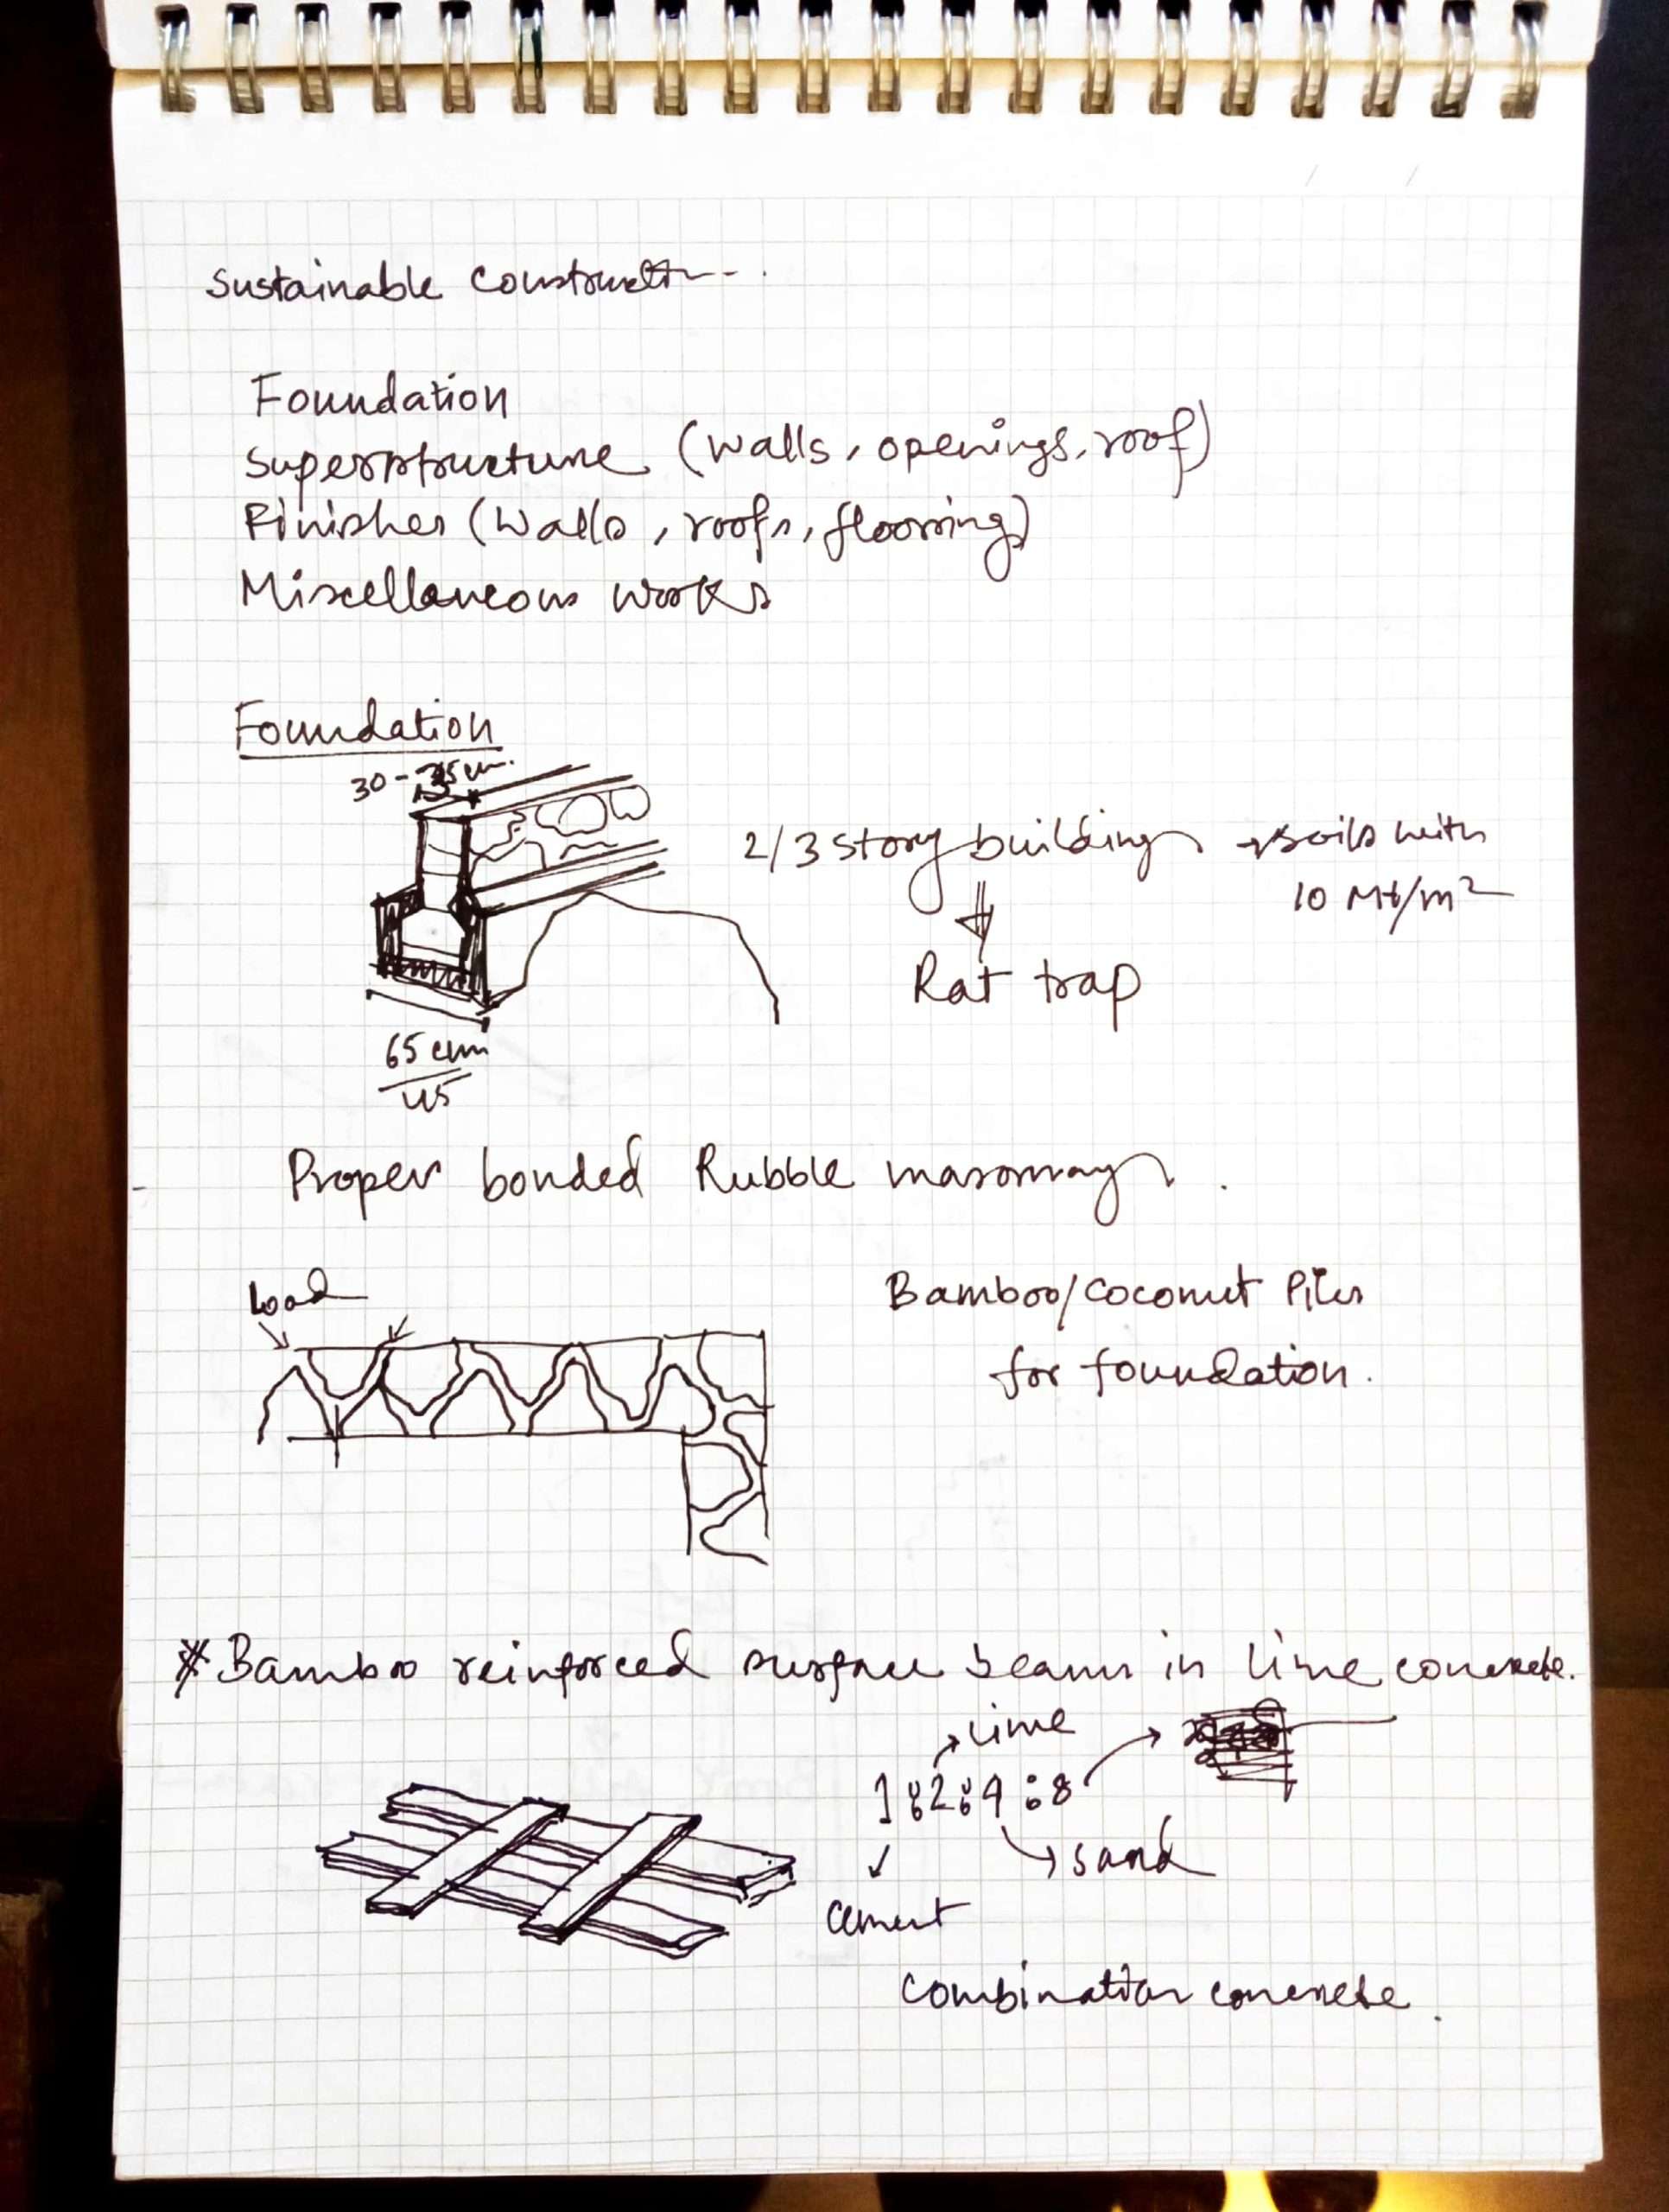 Sustainable Construction
Foundation
Superstructure (walls, openings, roof)
Finishes (walls, roofs, flooring)
Miscellaneous works
Foundation
30 - 35 cm.
2/3 story building → soils with
10 Mt/m²
Rat trap
65 cm
45
Proper bonded Rubble masonray.
Load
Bamboo/coconut Piles
for foundation.
* Bamboo reinforced surface beams in lime concrete.
lime
1:2:4:8
sand
cement
combination concrete.